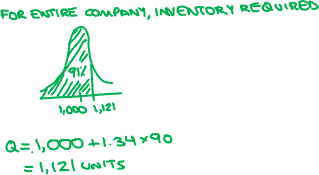 FOR ENTIRE COMPANY, INVENTORY REQUIRED
91%
1,000 1,121
Q = 1,000 + 1.34 × 90
= 1,121 UNITS